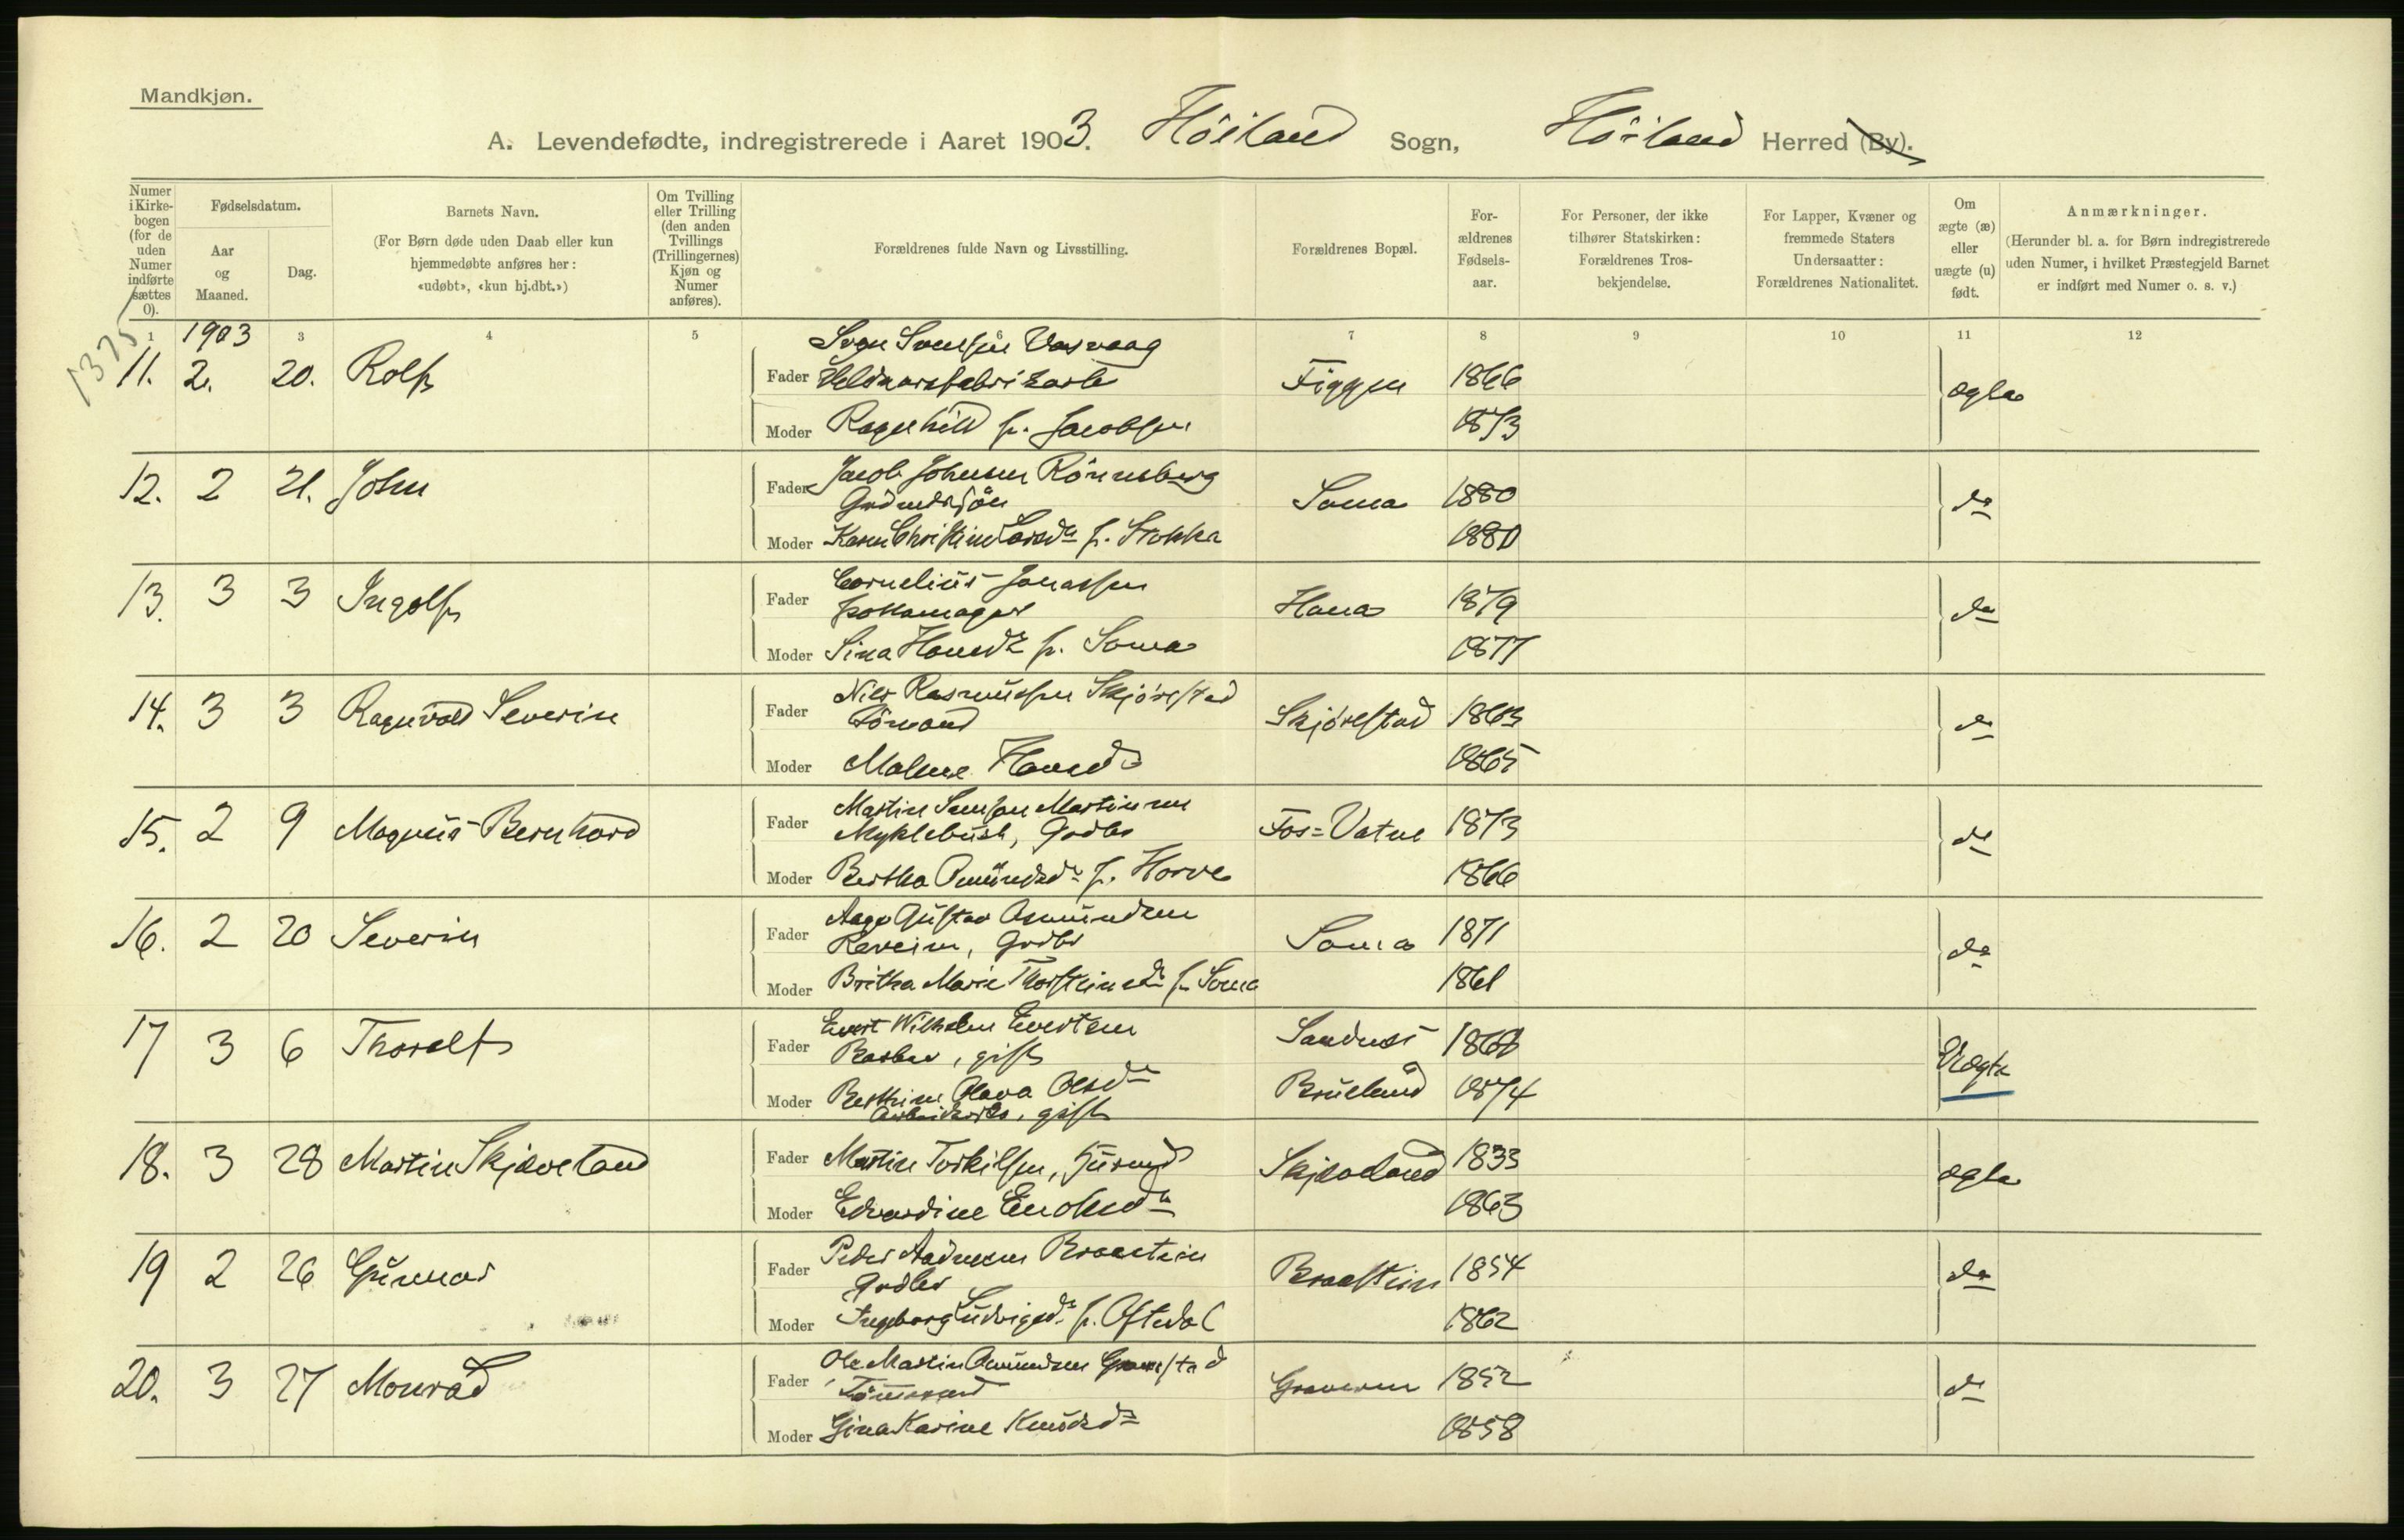 Mandkjøn.
A. Levendefødte, indregistrerede i Aaret 1903. Höiland Sogn, Höiland Herred (By).
Numer i Kirkebogen (for de uden Numer indførte sættes 0).
Fødselsdatum.
Aar og Maaned.
Dag.
Barnets Navn.
(For Børn døde uden Daab eller kun hjemmedøbte anføres her: «udøbt», «kun hj.dbt.»)
Om Tvilling eller Trilling (den anden Tvillings (Trillingernes) Kjøn og Numer anføres).
Forældrenes fulde Navn og Livsstilling.
Forældrenes Bopæl.
Forældrenes Fødselsaar.
For Personer, der ikke tilhører Statskirken: Forældrenes Trosbekjendelse.
For Lapper, Kvæner og fremmede Staters Undersaatter: Forældrenes Nationalitet.
Om ægte (æ) eller uægte (u) født.
Anmærkninger.
(Herunder bl. a. for Børn indregistrerede uden Numer, i hvilket Præstegjeld Barnet er indført med Numer o. s. v.)
1 1903 3 4 5 6 7 8 9 10 11 12
1375
11. 2. 20. Rolf
Fader Svend Svendsen Vasvaag
Figgen 1866 ægte
Moder Ragnhild f. Jacobsen 1873
12. 2 21. John
Fader Jacob Johnsen Rönneberg
Soma 1880 do
Moder Karen Christine Larsdr f. Stokka 1880
13. 3 3 Ingolf
Fader Cornelius Jonassen
Pottemager Hana 1879 do
Moder Sina Hansdr f. Soma 1877
14. 3 3 Ragnvald Severin
Fader Nils Rasmussen Skjörestad
Skjörestad 1863 do
Moder Malene Hansdr 1865
15. 2 9 Magnus Bernhard
Fader Martin Samson Martinsen
Myklebust, Gaardbr Fos=Vatne 1873 do
Moder Bertha Amundsdr f. Horve 1866
16. 2 20 Severin
Fader Aage Gustav Asmundsen
Gaardbr Soma 1871 do
Moder Britha Marie Thorsteinsdr f. Soma 1861
17 3 6 Thoralf
Fader Evert Wilhelm Evertsen
Barber, gift Sandnes 1868 Uægte
Moder Berthine Olava Olsdr Brueland 1874
gift
18. 3 28 Martin Skjæveland
Fader Martin Torkilsen, Husmd Skjæveland 1833 ægte
Moder Edvardine Enoksdr 1863
19 2 26 Gunnar
Fader Peder Andreasen Braastein
Gaardbr Braastein 1854 do
Moder Ingeborg Ludvigsdr f. Oftedal 1862
20. 3 27 Monrad
Fader Ole Martin Amundsen Gramstad
Graveren 1852 do
Moder Gina Karine Knudsdr 1858